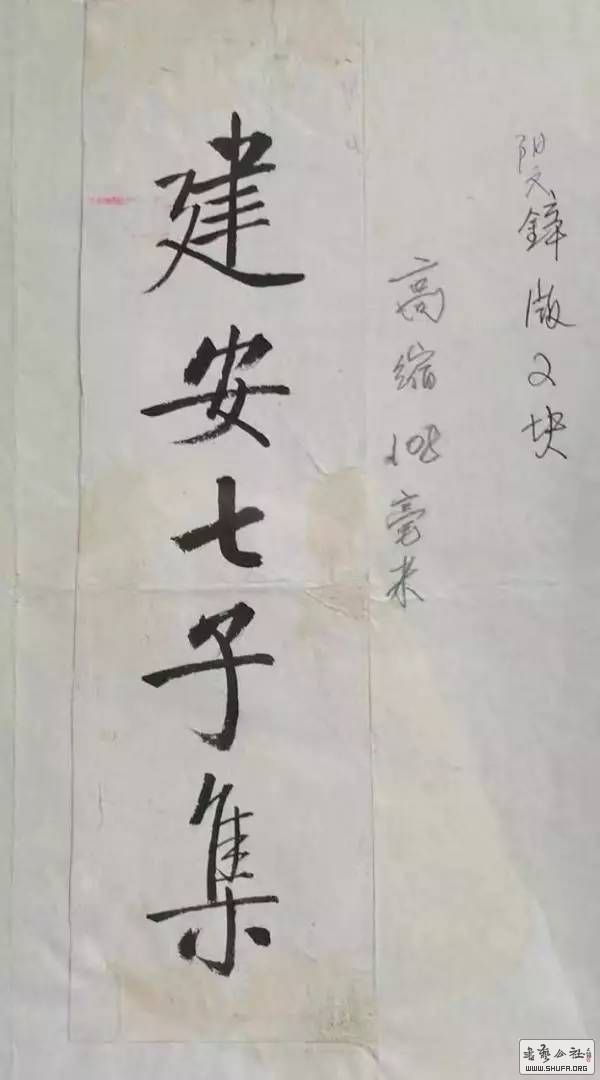 阳文锌版2块
高缩108毫米
建安七子集
书艺公社
WWW.SHUFA.ORG